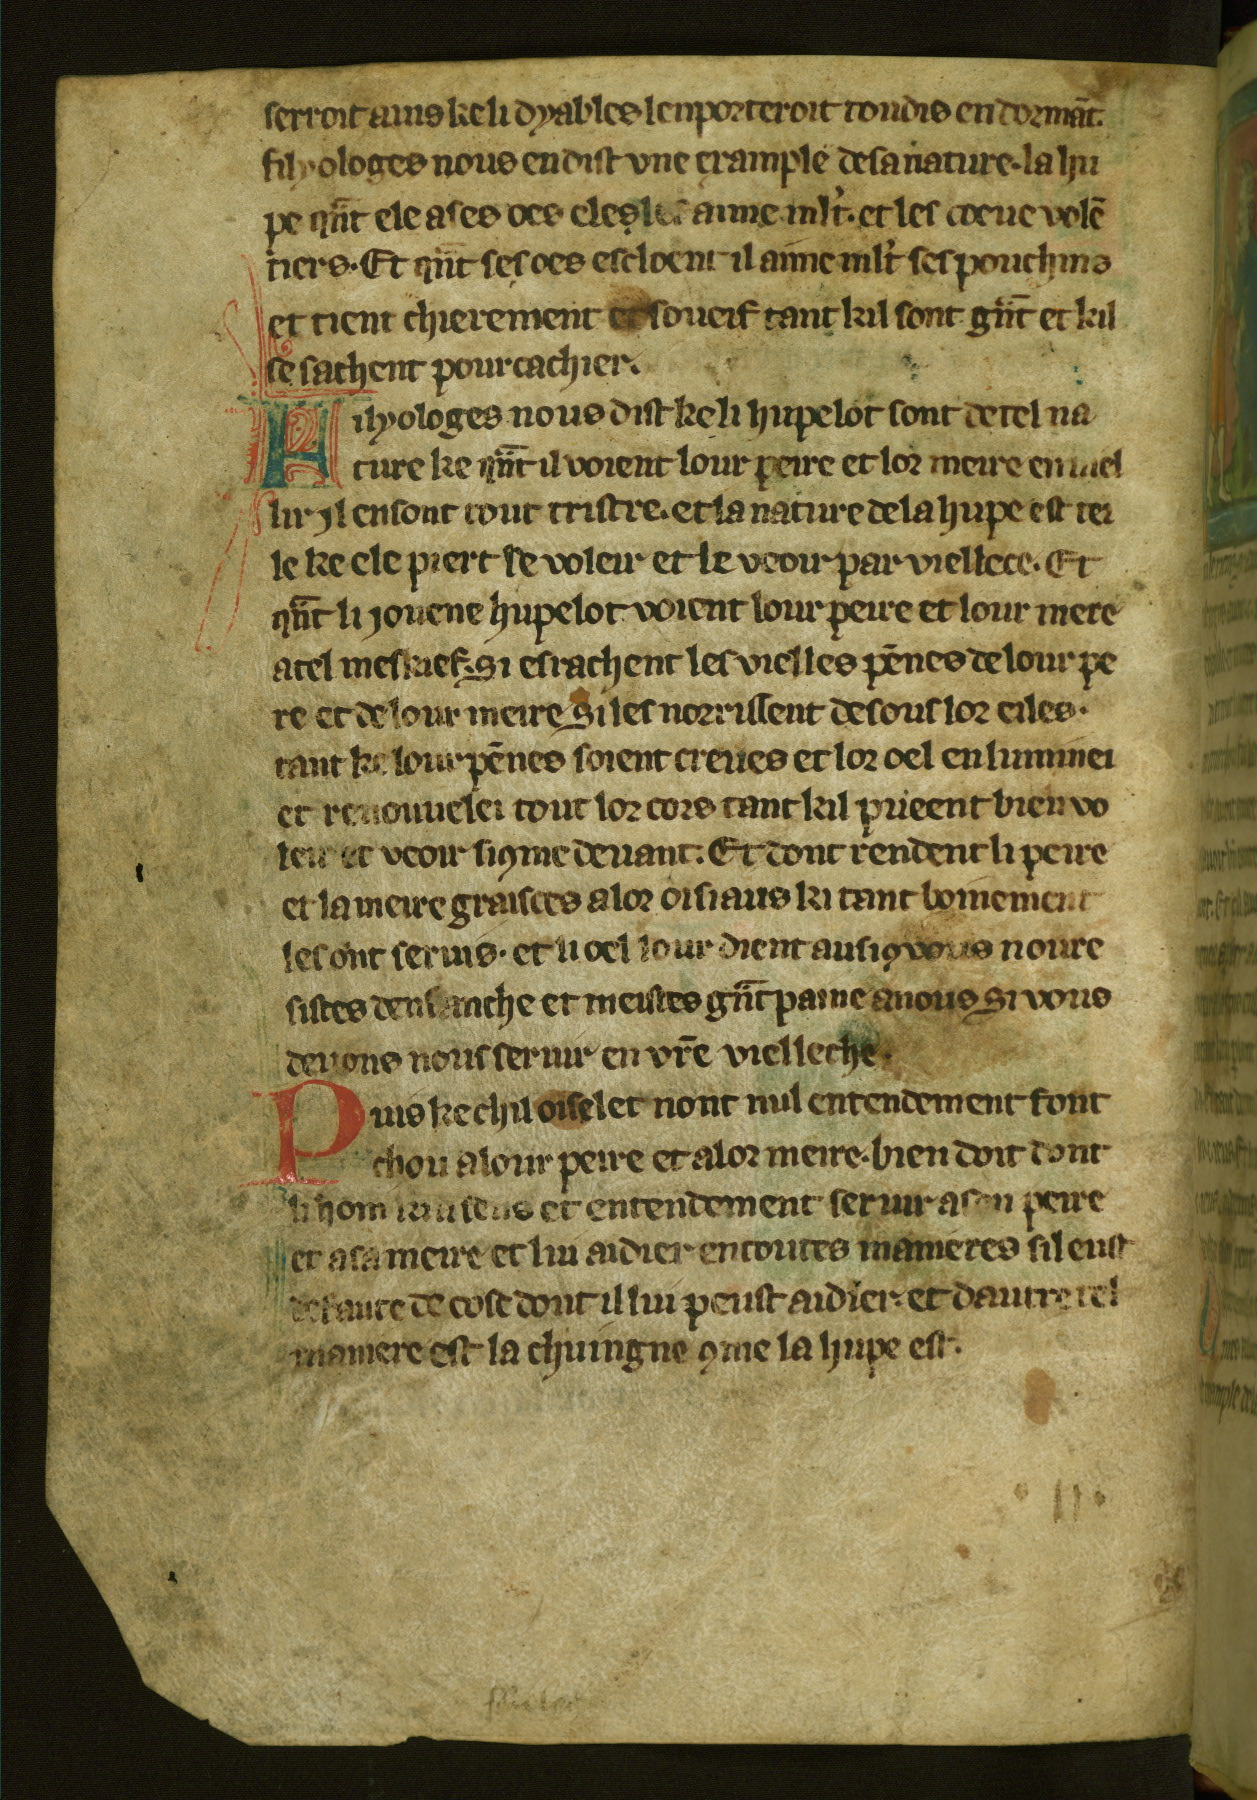 serroit auis ke li dyables lenporteroit toudis en dormāt.
filyologes nous en dist vne example de sa nature. la hu
pe qñt ele a ses oes ele les aime mlt̉. et les coeue volē
tiers. Et qñt ses oes escloent il aime mlt̉ ses pouchins
et tient chierement et souef tant kil sont gñt et kil
se sachent pourcachier.
Filyologes nous dist ke li hupelot sont de tel na
ture ke qñt il voient lour peire et lor meire en uiel
lir jl en sont tout tristre. et la nature de la hupe est tei
le ke ele piert se voleir et le veoir par viellece. Et
qñt li jouene hupelot voient lour peire et lour mere
a tel meskief. Si esrachent les vielles pēnes de lour pe
re et de lour meire Si les norrissent desous lor eiles.
tant ke lour pēnes soient creues et lor oel enluminei
et renouuelei tout lor cors tant kil prieent bien vo
leir et veoir si ꝯme deuant. Et dont rendent li peire
et la meire graisces a lor oisiaus ki tant boinement
les ont seruis. et li oel lour dient ausi ꝯ vous noure
sistes denfanche et meistes gñt paine a nous Si vous
deuons nous seruir en vr̄e vielleche.
Puis ke chil oiselet nont nul entendement font
chou a lour peire et a lor meire. bien doit dont
li hom ki a sens et entendement seruir a son peire
et a sa meire et lui aidier en toutes manieres sil eust
defaute de cose dont il lui peust aidier. et dautretel
maniere est la chuingne ꝯme la hupe est.
. II .